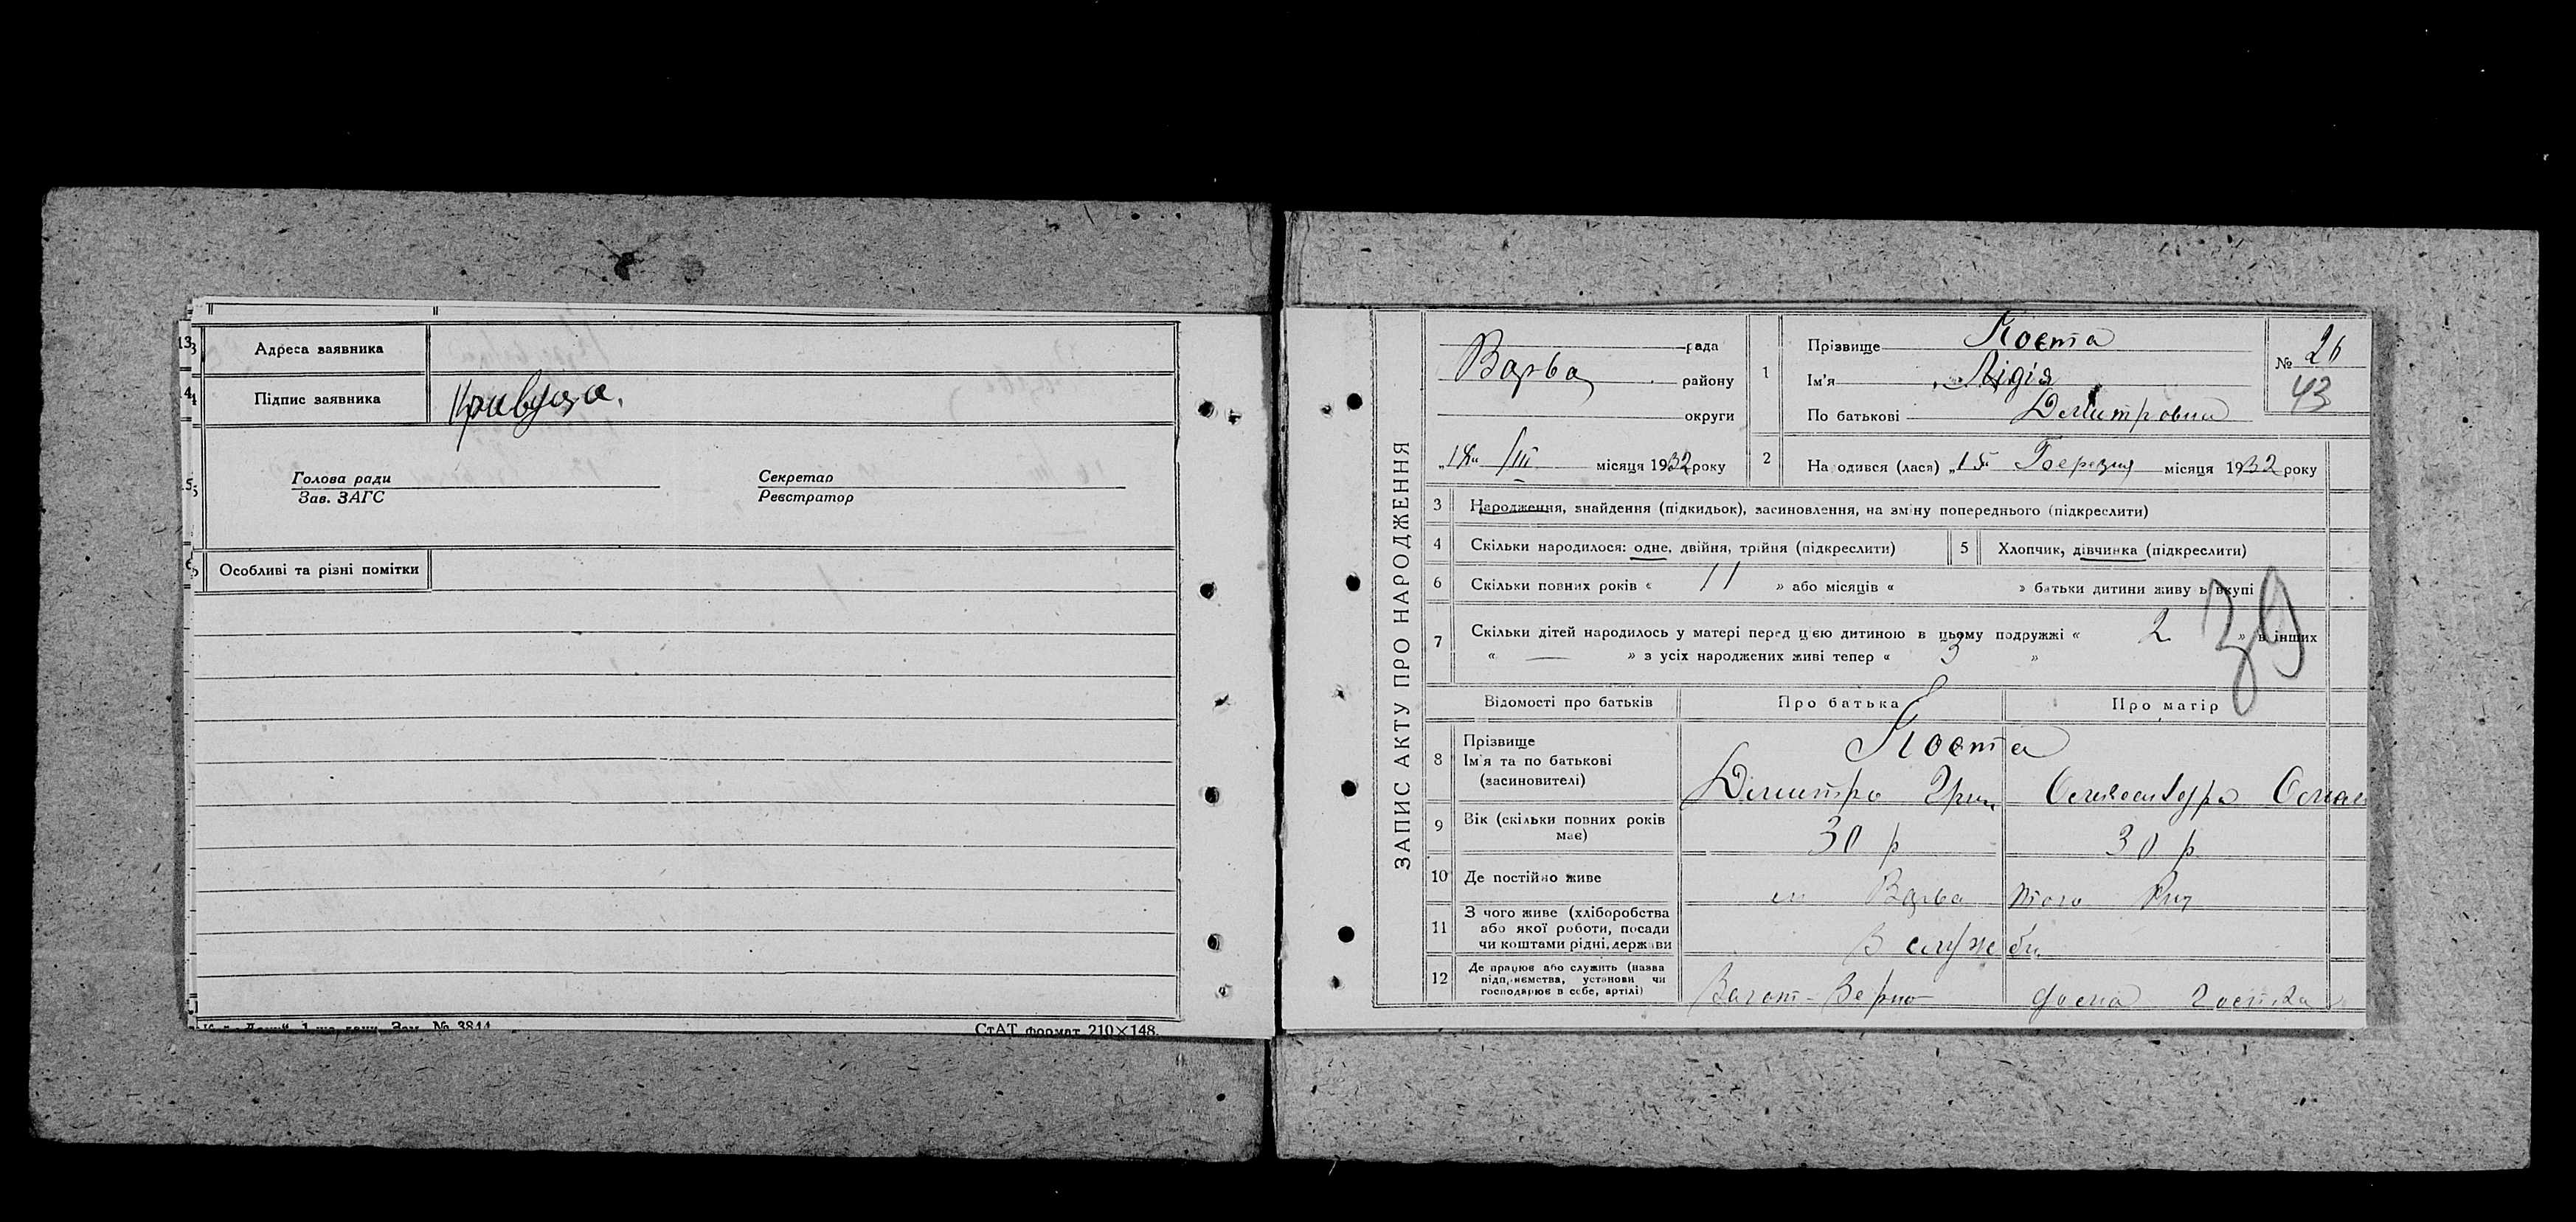 13
Адреса заявника
14
Підпис заявника
15
Голова ради
Зав. ЗАГС
Секретар
Реєстратор
Особливі та різні помітки
Зам. № 3844
СтАТ формат 210×148.
ЗАПИС АКТУ ПРО НАРОДЖЕННЯ
рада
Варва району
округи
„18“ III місяця 1932 року
1
Прізвище Поета
Ім'я Лідія
По батькові Дмитровна
№ 26
43
2
На одився (лася) „15“ Березня місяця 1932 року
3 Народження, знайдення (підкидьок), засиновлення, на зміну попереднього (підкреслити)
4 Скільки народилося: одне, двійня, трійня (підкреслити)
5 Хлопчик, дівчинка (підкреслити)
6 Скільки повних років « 11 » або місяців « » батьки дитини живу ь вкупі
39
7 Скільки дітей народилось у матері перед цією дитиною в цьому подружжі « 2 » в інших
« — » з усіх народжених живі тепер « 3 »
Відомості про батьків
Про батька
Про матір
8 Прізвище
Ім'я та по батькові
(засиновителі)
Поета
Дмитро Гри
9 Вік (скільки повних років
має)
30 р
30 р
10 Де постійно живе
м Варва
11 З чого живе (хліборобства
або якої роботи, посади
чи коштами рідні, держави
З служби
12 Де працює або служить (назва
підприємства, установи чи
господарює в себе, артілі)